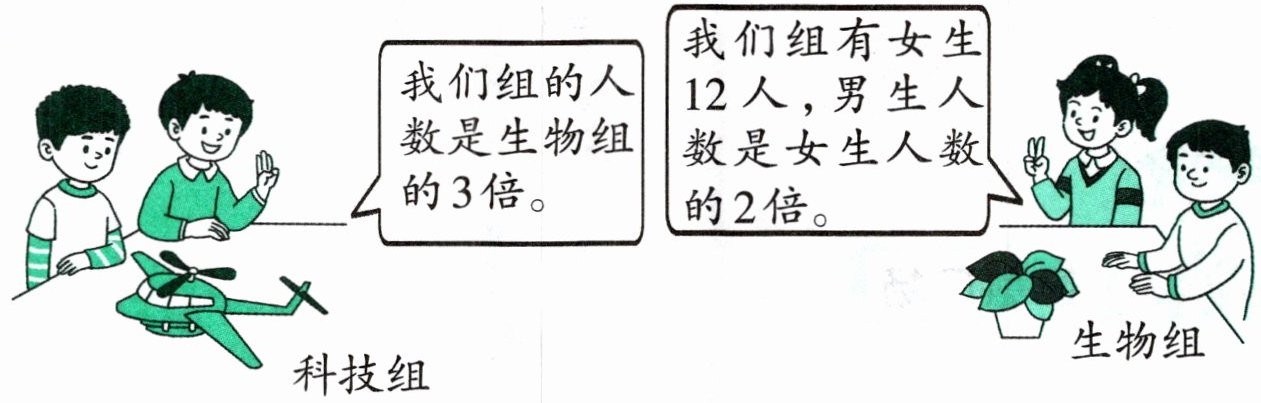 我们组的人
数是生物组
的3倍。
我们组有女生
12人，男生人
数是女生人数
的2倍。
科技组
生物组